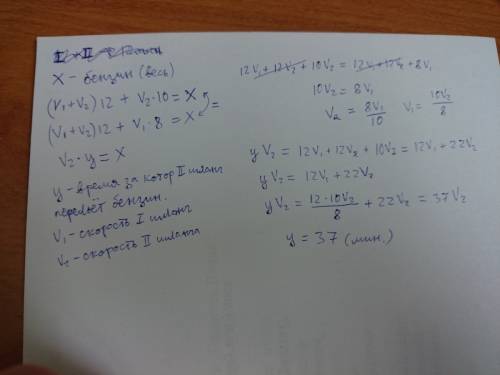 X - бензин (весь)
(V₁+V₂)12 + V₂·10 = X
(V₁+V₂)12 + V₁·8 = X
=
V₂·y = X
y - время за котор II шланг
перельёт бензин.
V₁ - скорость I шланг
V₂ - скорость II шланга
12V₁ + 12V₂ + 10V₂ = 12V₁ + 12V₂ + 8V₁
10V₂ = 8V₁
V₂ = 8V₁/10 V₁ = 10V₂/8
yV₂ = 12V₁ + 12V₂ + 10V₂ = 12V₁ + 22V₂
yV₂ = 12V₁ + 22V₂
yV₂ = 12·10V₂/8 + 22V₂ = 37V₂
y = 37 (мин.)